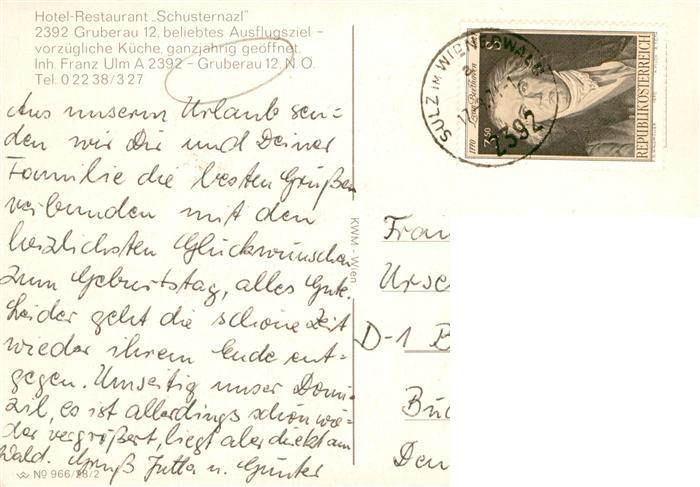 Hotel-Restaurant „Schusternazl"
2392 Gruberau 12, beliebtes Ausflugsziel –
vorzügliche Küche, ganzjährig geöffnet.
Inh. Franz Ulm A 2392 – Gruberau 12, N.Ö.
Tel. 0 22 38/3 27
Aus unserm Urlaub sen=
den wir Dir und Deiner
Familie die besten Grüßen
verbunden mit den
herzlichsten Glückwünschen
zum Geburtstag, alles Gute.
Leider geht die schöne Zeit
wieder ihrem Ende ent=
gegen. Umseitig unser Domi=
zil, es ist allerdings schon wie=
der vergrößert, liegt aber direkt am
Wald. Gruß Jutta u. Günter
Nº 966/28/2
KWM - Wien
SULZ IM WIENERWALD
2392
1770
S 3.50
REPUBLIK ÖSTERREICH
Frau
Urse
D-1 B
Buc
Den